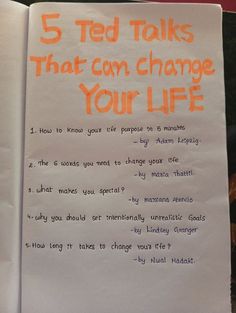 5 Ted Talks
That can change
YOUR LIFE
1. How to know your life purpose in 5 minutes
- by: Adam Leipzig.
2. The 6 words you need to change your life
-by Maria Thattil
3. What makes you special?
-by Mariana Atencio
4-why you should set intentionally unrealistic Goals
-by Lindsey Granger
5-How long it takes to change your life?
-by Nual Hadaki.